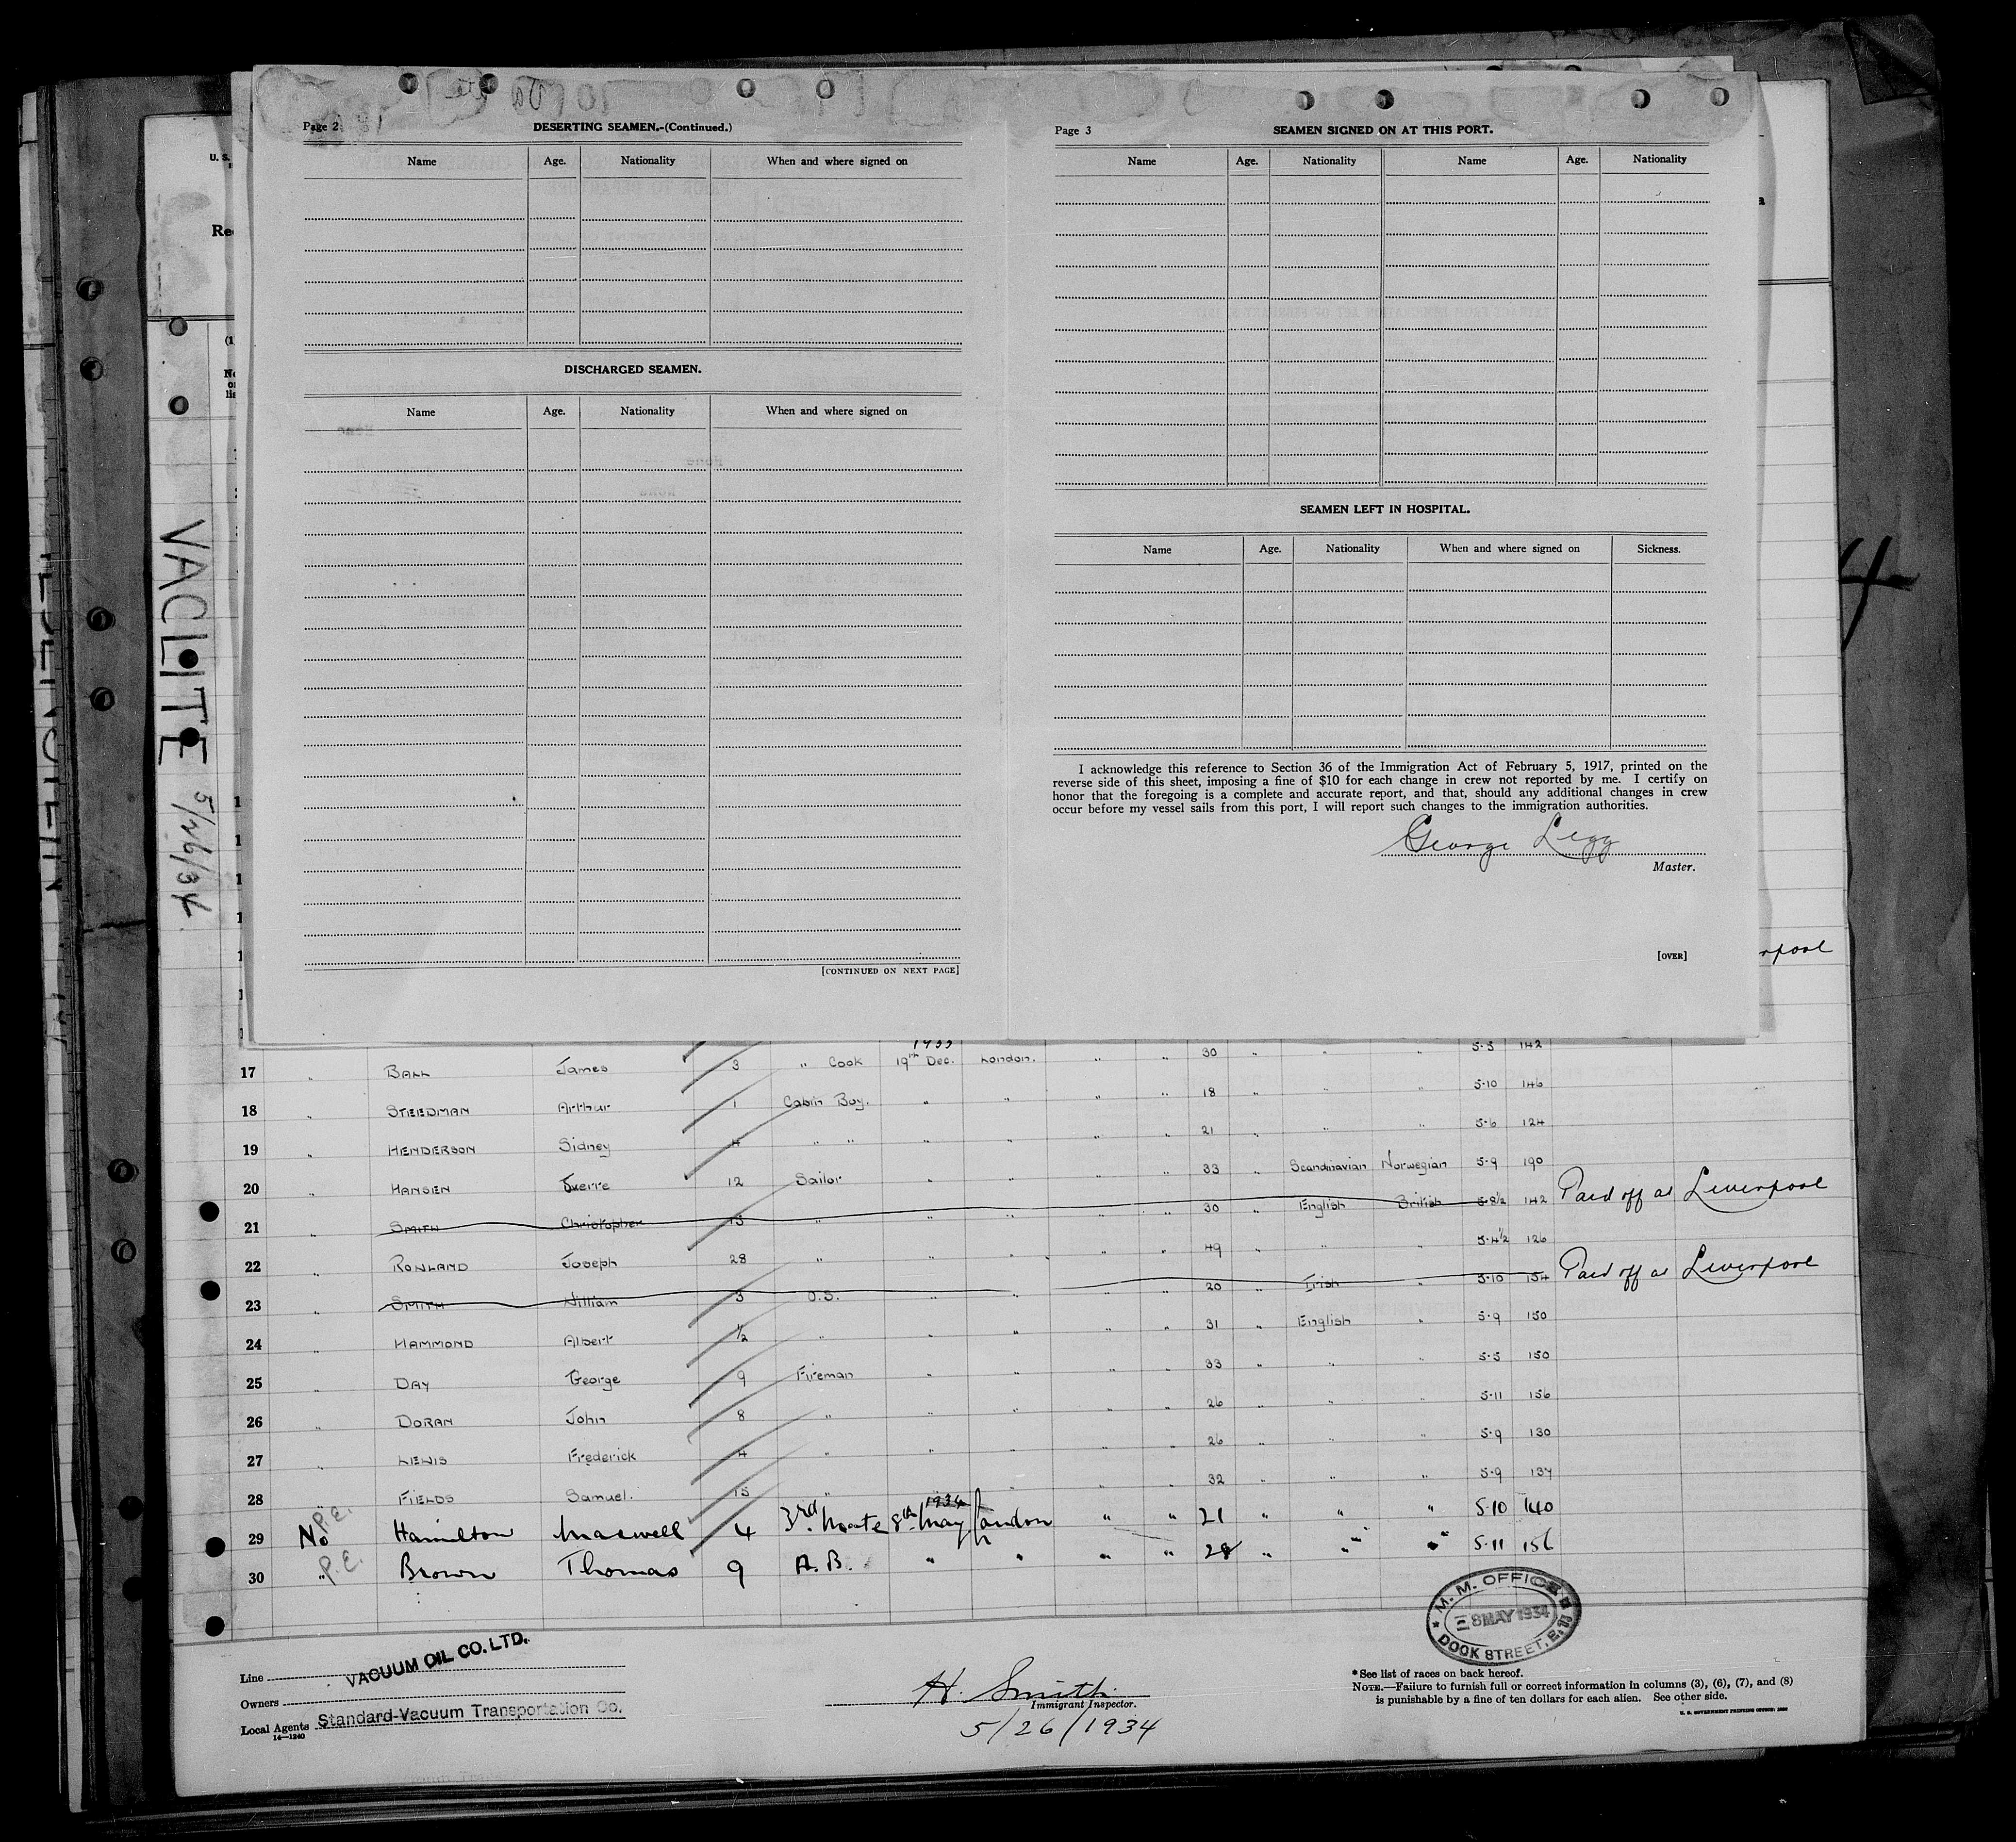 Page 2
DESERTING SEAMEN.-(Continued.)
Name Age. Nationality When and where signed on
DISCHARGED SEAMEN.
Name Age. Nationality When and where signed on
[CONTINUED ON NEXT PAGE]
Page 3
SEAMEN SIGNED ON AT THIS PORT.
Name Age. Nationality Name Age. Nationality
SEAMEN LEFT IN HOSPITAL.
Name Age. Nationality When and where signed on Sickness.
I acknowledge this reference to Section 36 of the Immigration Act of February 5, 1917, printed on the
reverse side of this sheet, imposing a fine of $10 for each change in crew not reported by me. I certify on
honor that the foregoing is a complete and accurate report, and that, should any additional changes in crew
occur before my vessel sails from this port, I will report such changes to the immigration authorities.
George Legg
Master.
[OVER]
VACLITE 5/26/34
U. S.
4
rpool
1933
5-5 142
17 " BALL James 3 " Cook 19th Dec. London. " " 30 " " "
18 " STEEDMAN Arthur 1 Cabin Boy. " " " " 18 " " " 5-10 146
19 " HENDERSON Sidney 4 " " " " " " 21 " " " 5-6 124
20 " HANSEN 12 Sailor " " " " 33 " Scandinavian Norwegian 5-9 190
21 " SMITH Christopher 13 " " " " " 30 " English British 5-8½ 142 Paid off at Liverpool
22 " ROWLAND Joseph 28 " " " " " 49 " " " 5-4½ 126
23 " SMITH William 3 O.S. " " " " 20 " Irish " 5-10 154 Paid off at Liverpool
24 " HAMMOND Albert ½ " " " " " 31 " English " 5-9 150
25 " DAY George 9 Fireman " " " " 33 " " " 5-5 150
26 " DORAN John 8 " " " " " 26 " " " 5-11 156
27 " LEWIS Frederick 4 " " " " " 26 " " " 5-9 130
28 " FIELDS Samuel. 15 " " " " " 32 " " " 5-9 137
P.E. 1934
29 No Hamilton Maxwell 4 3rd. Mate 8th May London " " 21 " " " 5-10 140
30 " P.E. Brown Thomas 9 A.B. " " " " 28 " " " 5-11 156
M. M. OFFICE
8 MAY 1934
DOCK STREET, E.
Line VACUUM OIL CO. LTD.
Owners
Local Agents Standard-Vacuum Transportation Co.
14—1240
H. Smith
Immigrant Inspector.
5/26/1934
*See list of races on back hereof.
NOTE.—Failure to furnish full or correct information in columns (3), (6), (7), and (8)
is punishable by a fine of ten dollars for each alien. See other side.